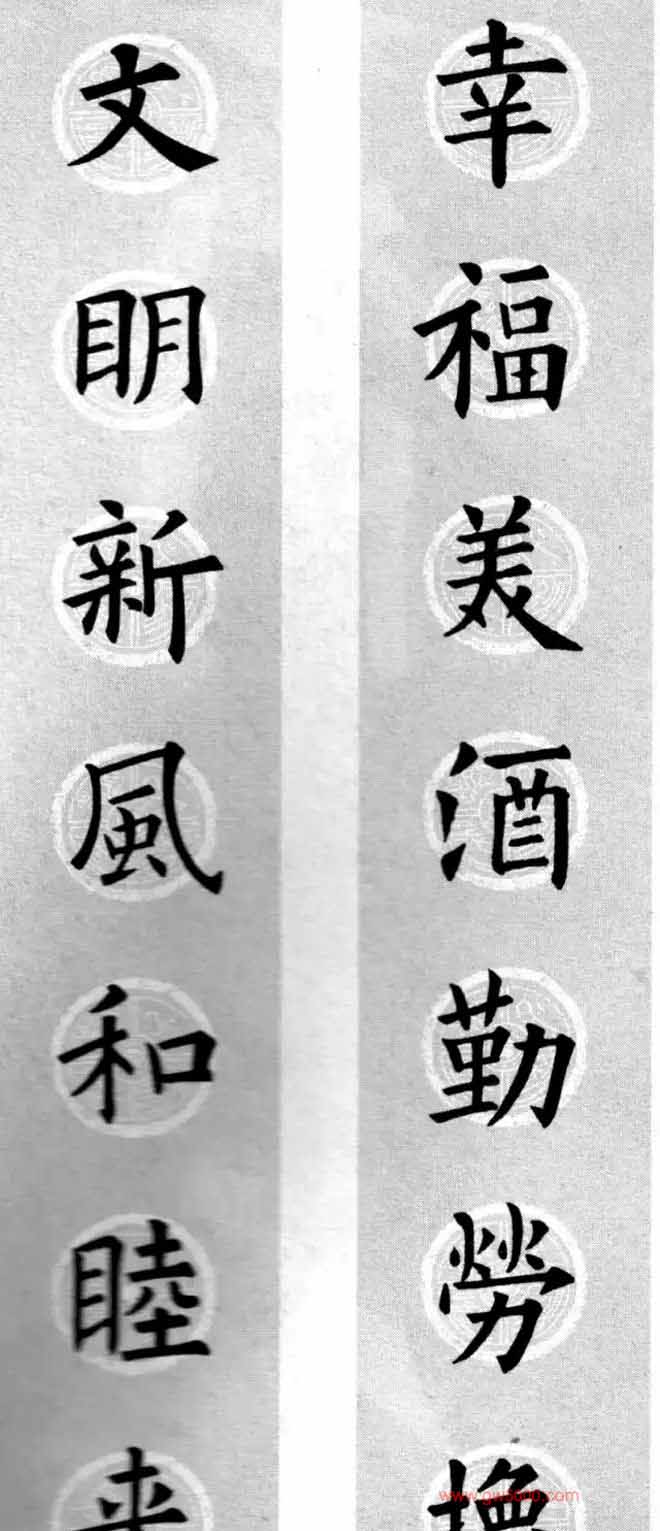 幸福美酒勤勞
文明新風和睦
www.gw5000.com